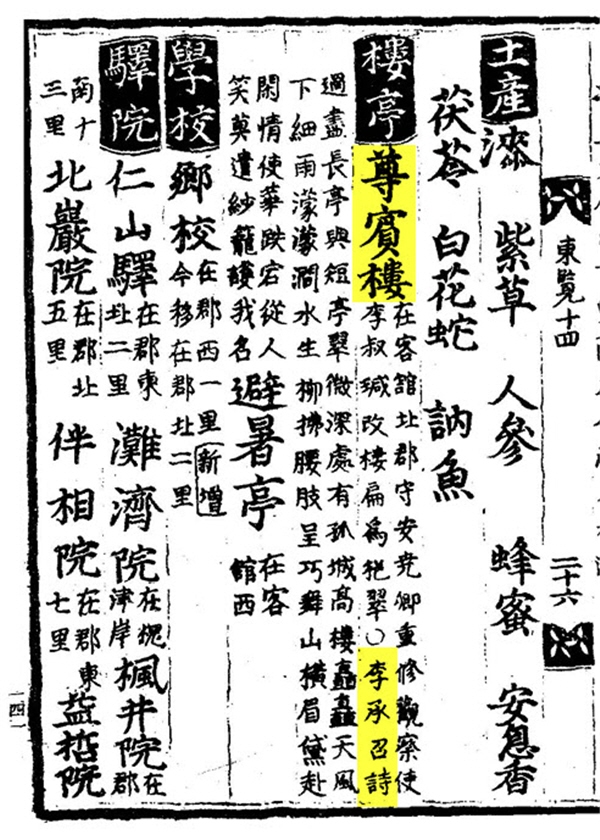 東覽十四
二十六
土產 漆 紫草 人參 蜂蜜 安息香
茯苓 白花蛇 訥魚
樓亭 尊賓樓 在客館北郡守安堯卿重修觀察使
李叔瑊改樓扁爲挹翠○李承召詩
過盡長亭與短亭翠微深處有孤城高樓矗矗天風
下細雨濛濛澗水生柳拂腰肢呈巧舞山橫眉黛赴
閑情使華跌宕從人
笑莫遣紗籠護我名 避暑亭 在客
館西
學校 鄉校 在郡西一里 新增
今移在郡北二里
驛院 仁山驛 在郡東
北二里 灘濟院 在槐
津岸 楓井院 在
郡
南十
三里 北巖院 在郡北
五里 伴相院 在郡東
七里 益哲院